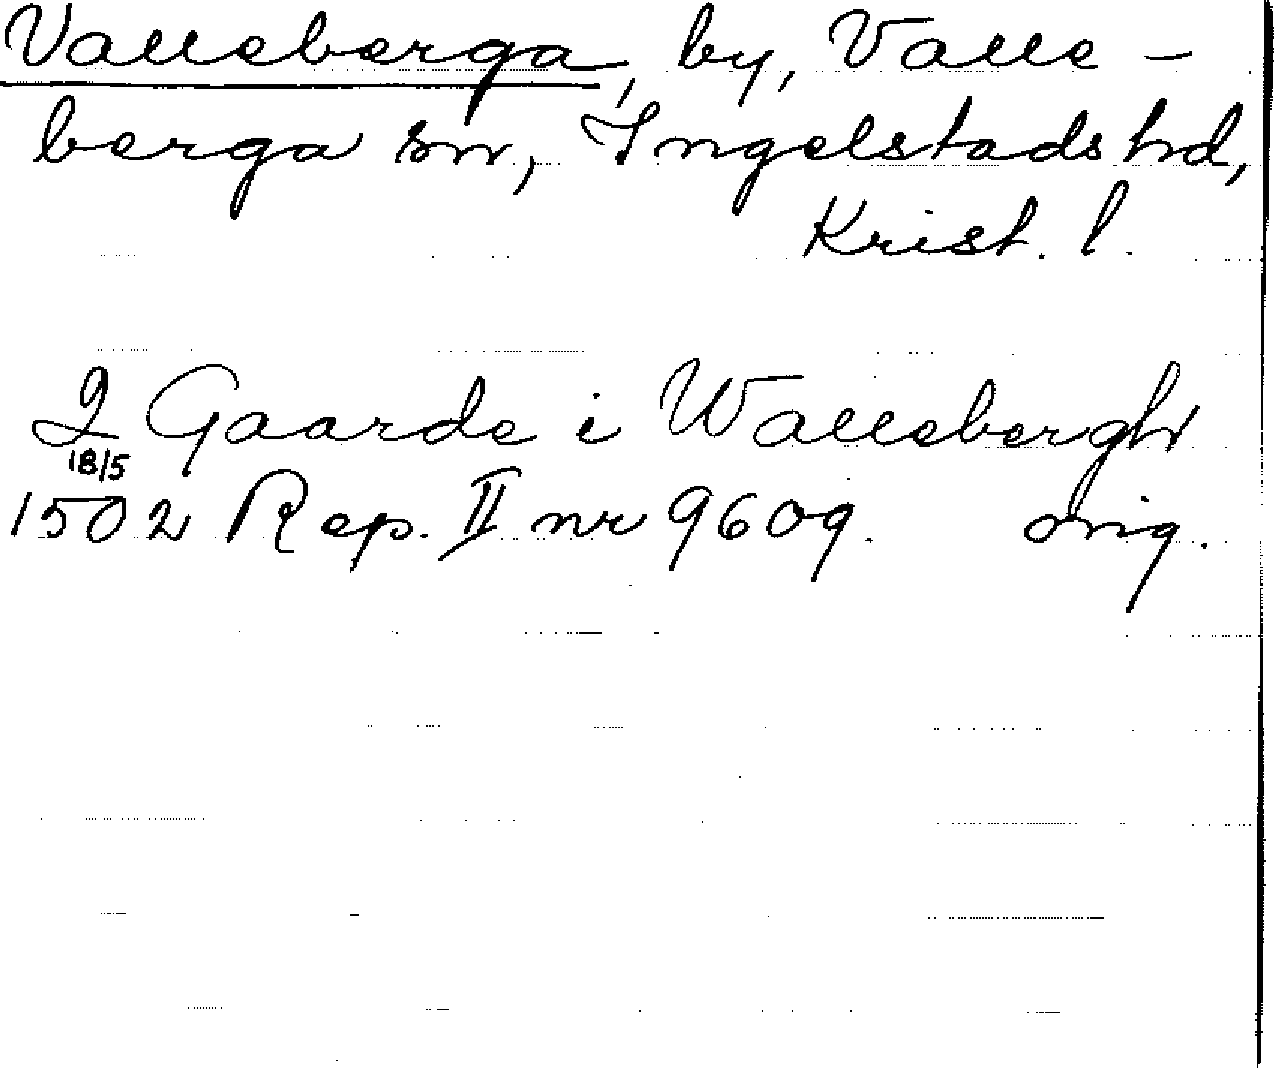 Valleberga, by, Valle-
berga sn, Ingelstads hd,
Krist. l.
2 Gaarde i Wallebergh
18/5
1502 Rep. II nr 9609. orig.